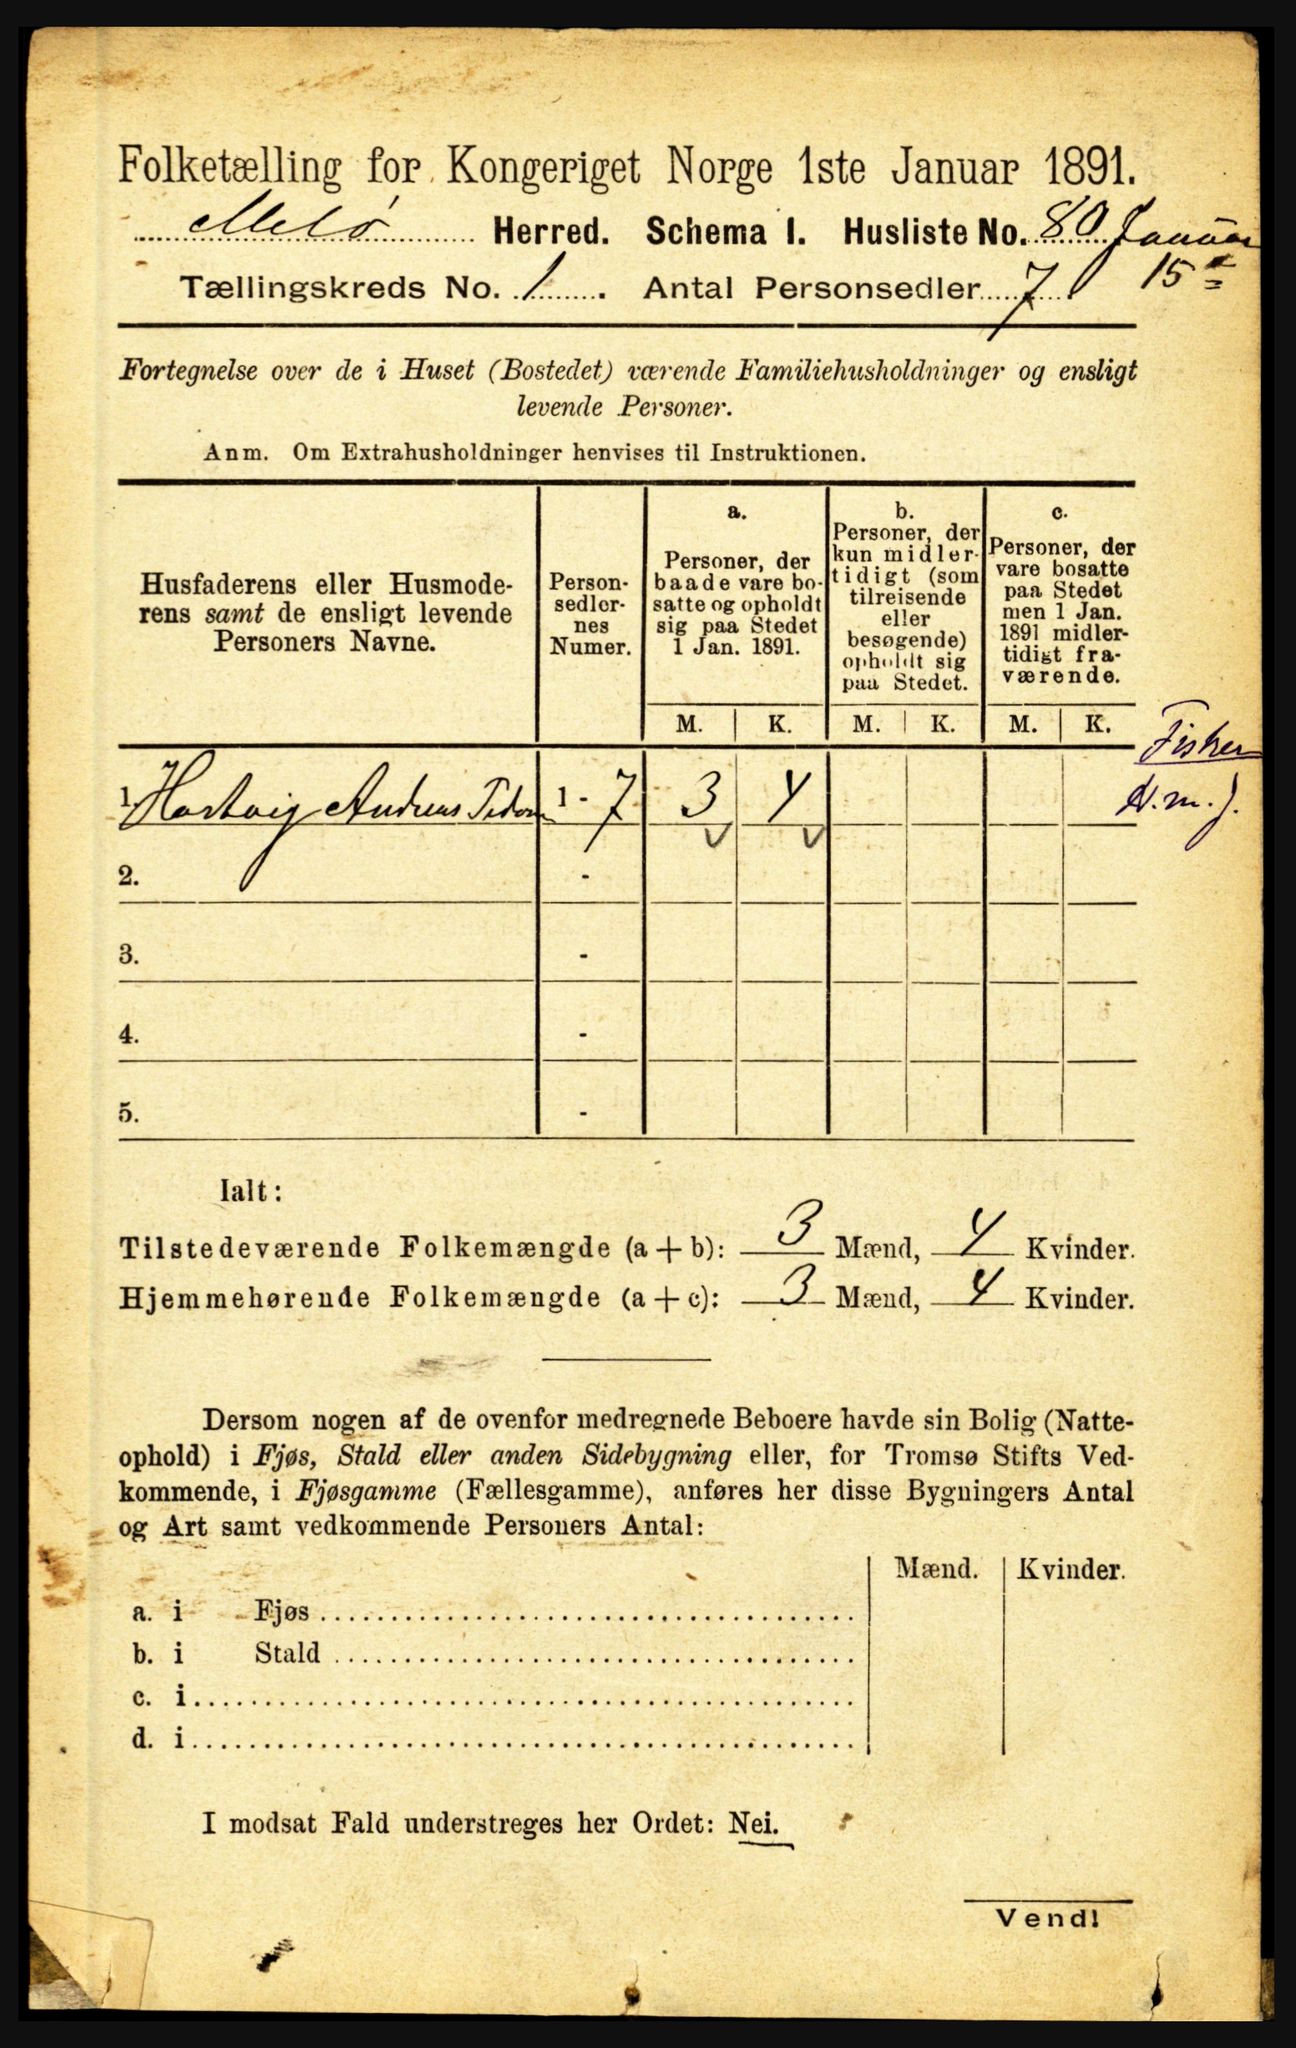 Folketælling for Kongeriget Norge 1ste Januar 1891.
Melø Herred. Schema I. Husliste No. 80 Januar
Tællingskreds No. 1. Antal Personsedler 7 15
Fortegnelse over de i Huset (Bostedet) værende Familiehusholdninger og ensligt
levende Personer.
Anm. Om Extrahusholdninger henvises til Instruktionen.
Husfaderens eller Husmode-
rens samt de ensligt levende
Personers Navne.
Person-
sedler-
nes
Numer.
a.
Personer, der
baade vare bo-
satte og opholdt
sig paa Stedet
1 Jan. 1891.
b.
Personer, der
kun midler-
tidigt (som
tilreisende
eller
besøgende)
opholdt sig
paa Stedet.
c.
Personer, der
vare bosatte
paa Stedet
men 1 Jan.
1891 midler-
tidigt fra-
værende.
M. K. M. K. M. K.
Fisker
1. Hartvig Andreas 1 - 7 3 4
2. -
3. -
4. -
5. -
Ialt:
Tilstedeværende Folkemængde (a + b): 3 Mænd, 4 Kvinder.
Hjemmehørende Folkemængde (a + c): 3 Mænd, 4 Kvinder.
Dersom nogen af de ovenfor medregnede Beboere havde sin Bolig (Natte-
ophold) i Fjøs, Stald eller anden Sidebygning eller, for Tromsø Stifts Ved-
kommende, i Fjøsgamme (Fællesgamme), anføres her disse Bygningers Antal
og Art samt vedkommende Personers Antal:
Mænd. Kvinder.
a. i Fjøs
b. i Stald
c. i
d. i
I modsat Fald understreges her Ordet: Nei.
Vend!